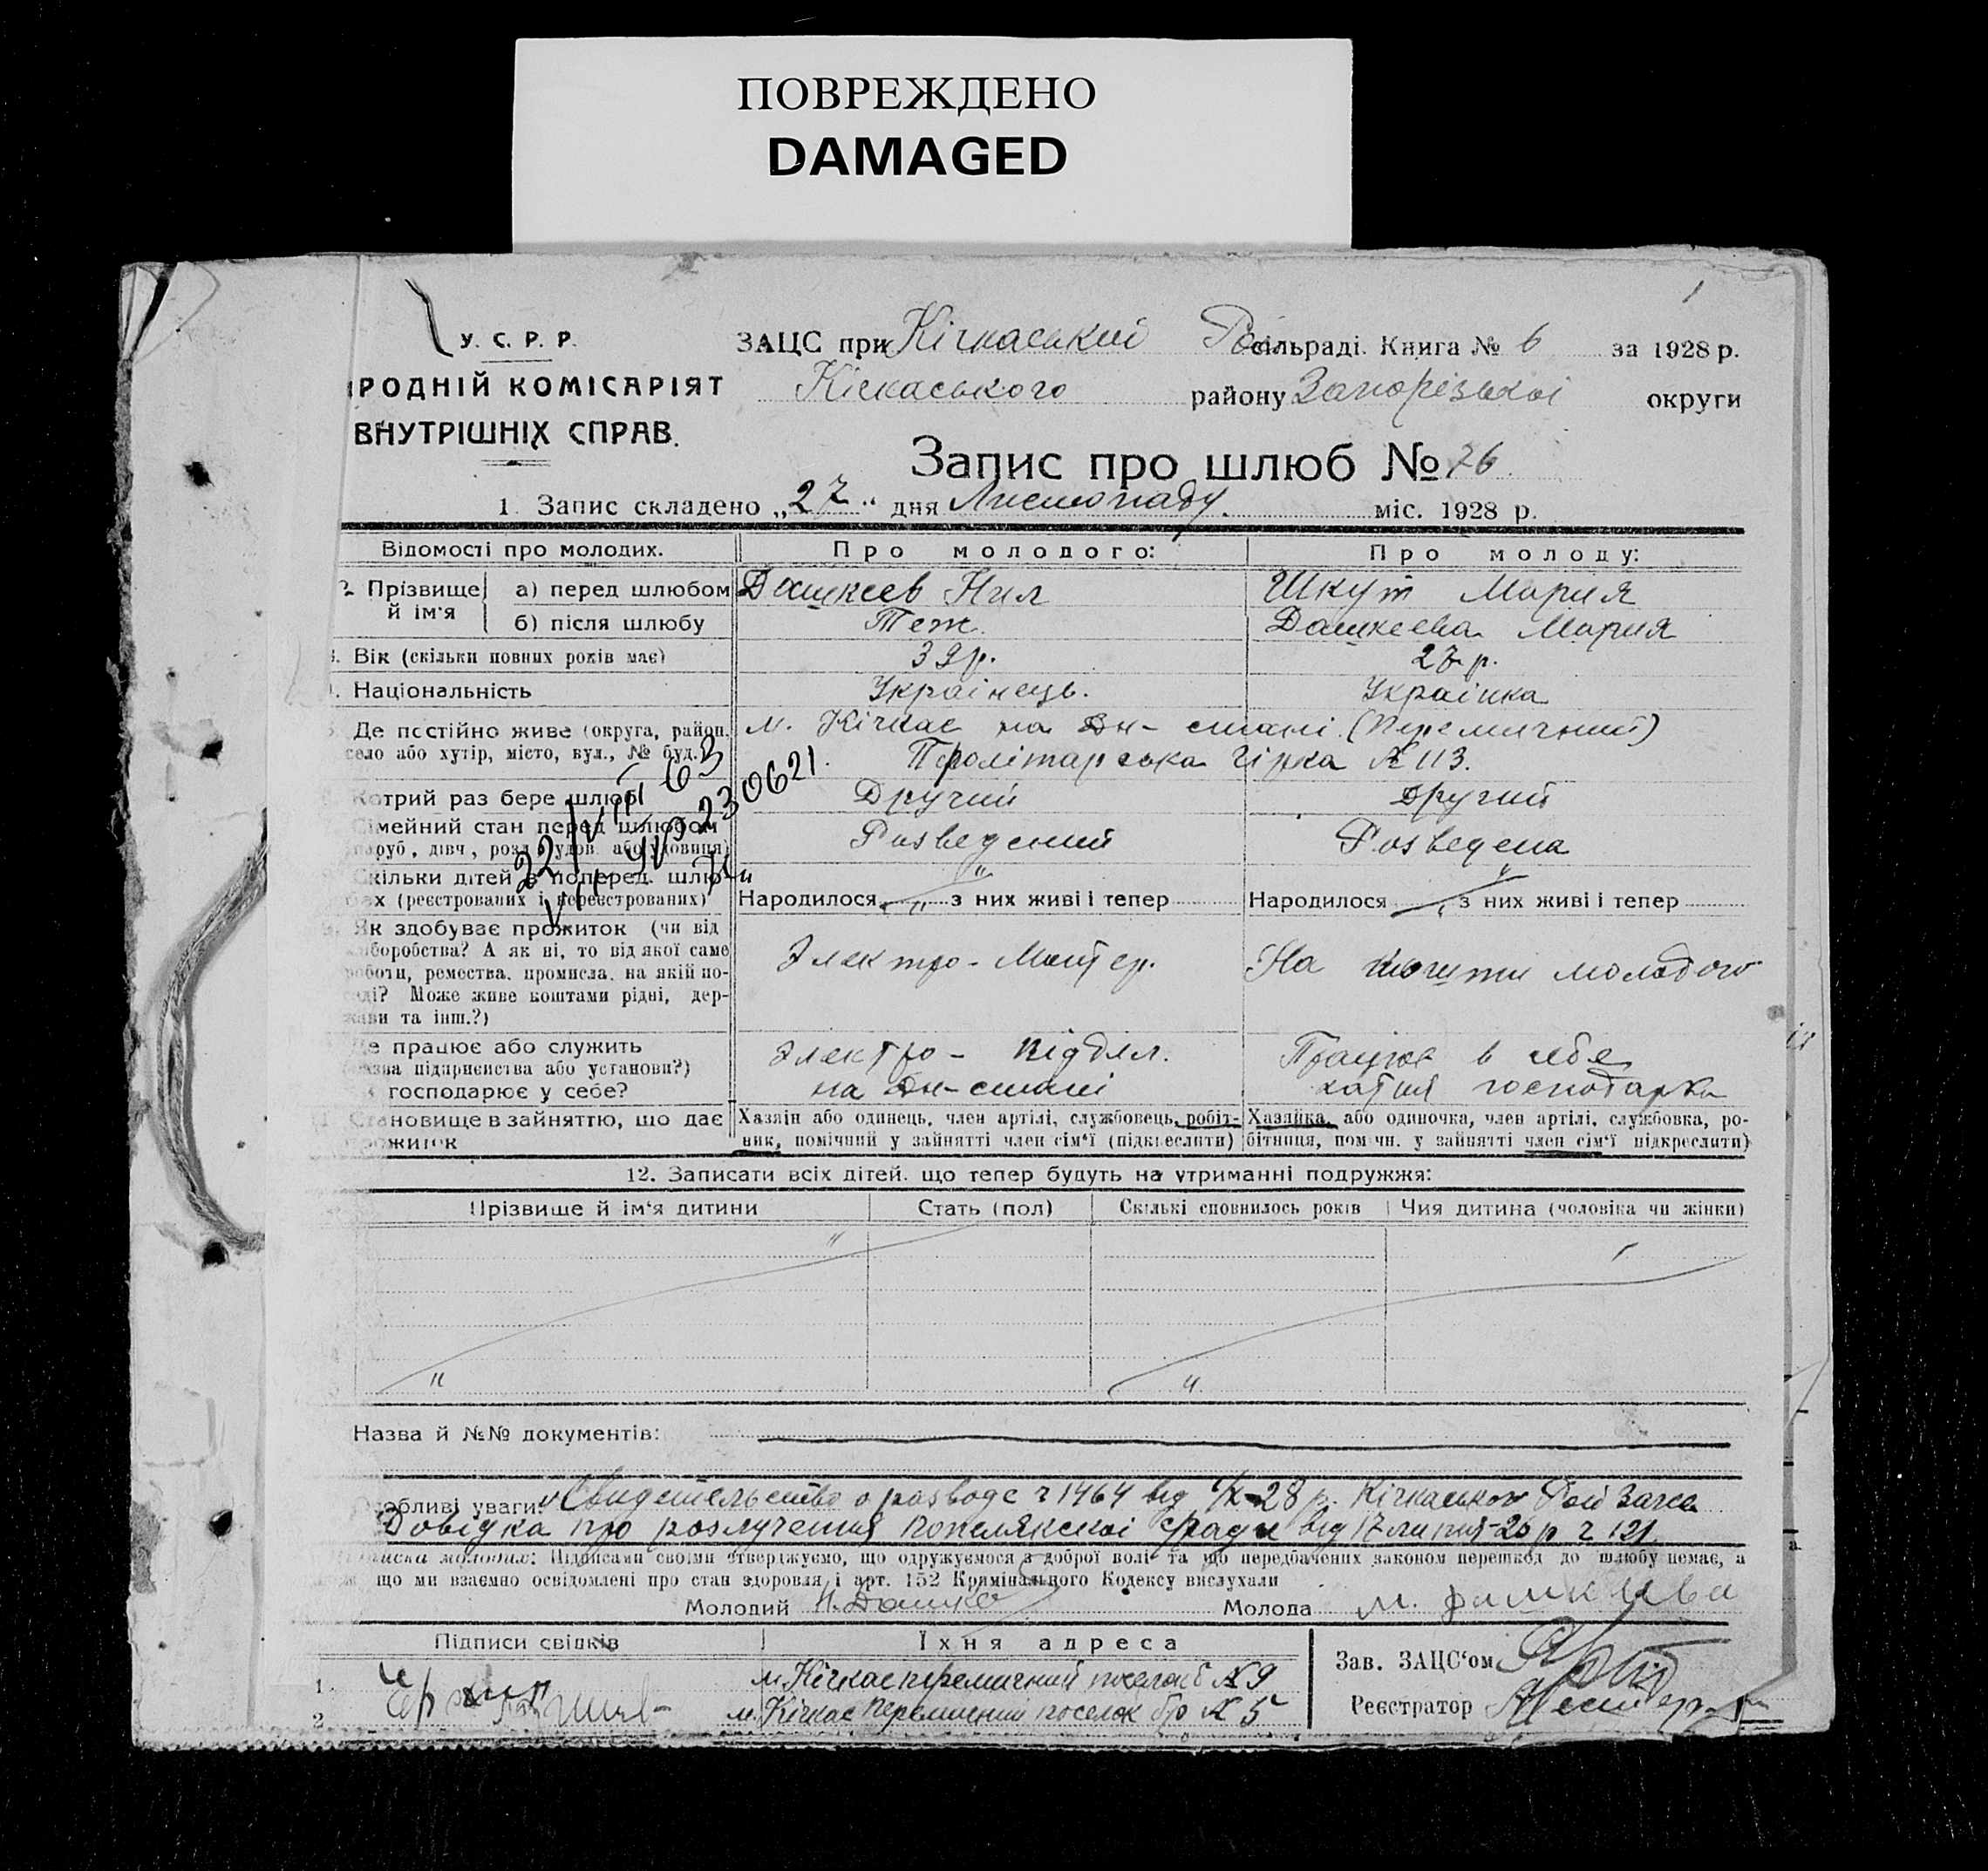 ПОВРЕЖДЕНО
DAMAGED
У. С. Р. Р.
РОДНІЙ КОМІСАРІЯТ
ВНУТРІШНІХ СПРАВ.
ЗАЦС при Кічкаський сільраді. Книга № 6 за 1928 р.
Кічкаського району Запорізької округи
Запис про шлюб № 76
1 Запис складено „27" дня Листопаду. міс. 1928 р.
Відомості про молодих. Про молодого: Про молоду:
2. Прізвище й ім'я а) перед шлюбом Дашкеев Нил Шкут Мария
б) після шлюбу Теж. Дашкеева Мария
Вік (скільки повних років має) 39 р. 27 р.
Національність Українець. Українка
Де постійно живе (округа, район, м. Кічкас на Дн-стані. (Перемичний)
село або хутір, місто, вул., № буд.) Пролітарська гірка № 113.
Котрий раз бере шлюб Другий Другий
Сімейний стан перед шлюбом Розведений Розведена
паруб, дівч, розл. удов. або удовиця)
22/VII 63
230621
Скільки дітей в поперед. шлю-
бах (реєстрованих і нереєстрованих) Народилося " з них живі і тепер Народилося " з них живі і тепер
Як здобуває прожиток (чи від
хліборобства? А як ні, то від якої саме Электро-Монтер. На кошти молодого
роботи, ремества, промисла, на якій по-
саді? Може живе коштами рідні, дер-
жави та інш.?)
Де працює або служить Электро- підділ. Працює в себе
(назва підприємства або установи?) на Дн-стані хатня господарка
господарює у себе?
11 Становище в зайняттю, що дає Хазяїн або одинець, член артілі, службовець, робіт- Хазяйка, або одиночка, член артілі, службовка, ро-
прожиток ник, помічний у зайнятті член сім'ї (підкреслити) бітниця, пом чн. у зайнятті член сім'ї підкреслити)
12. Записати всіх дітей, що тепер будуть на утриманні подружжя:
Прізвище й ім'я дитини Стать (пол) Скількі сповнилось років Чия дитина (чоловіка чи жінки)
Назва й №№ документів:
Особливі уваги: Свидетельство о разводе ч 1464 від 28 р. Кічкаського Рай Загса
Довідка про розлучення від 17 липня-26 р ч 121.
Підписка молодих: Підписами своїми стверджуємо, що одружуємося з доброї волі та що передбачених законом перешкод до шлюбу немає, а
що ми взаємно освідомлені про стан здоровля і арт. 152 Кримінального Кодексу вислухали
Молодий Н. Дашке Молода М. Дашкева
Підписи свідків Їхня адреса Зав. ЗАЦС'ом
1. м. Кічкас перемичний поселок б № 9
2. м. Кічкас перемични поселок бр № 5 Реєстратор